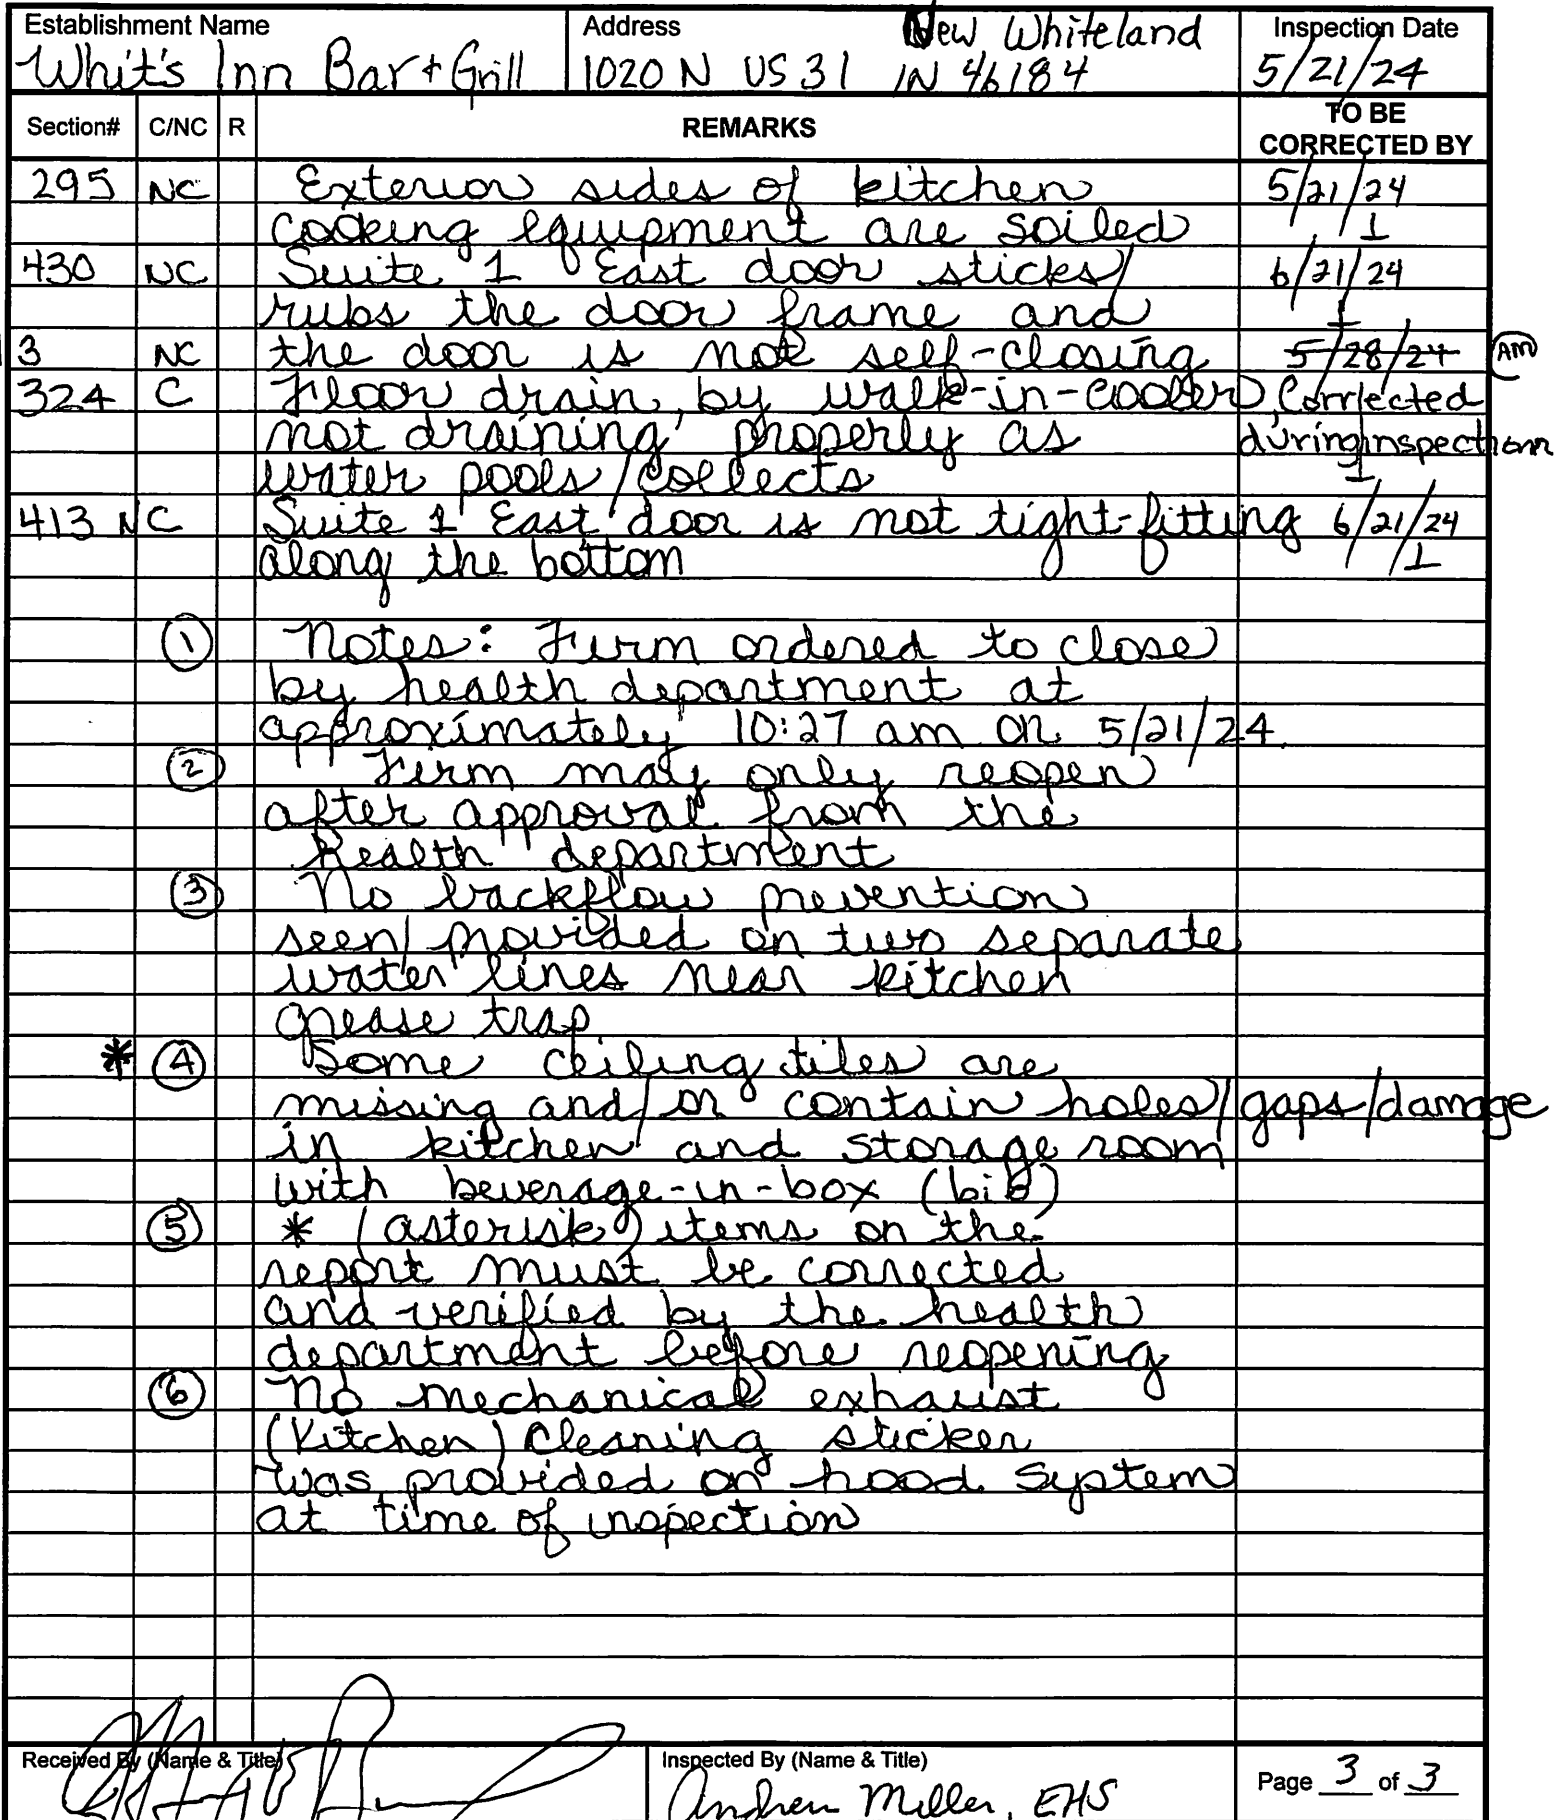 Establishment Name Address New Whiteland Inspection Date
Whit's Inn Bar + Grill 1020 N US 31 IN 46184 5/21/24
Section# C/NC R REMARKS TO BE CORRECTED BY
295 NC Exterior sides of kitchen 5/21/24
cooking equipment are soiled
430 NC Suite 1 East door sticks/ 6/21/24
rubs the door frame and
3 NC the door is not self-closing 5/28/24 AM
324 C Floor drain, by walk-in-cooler, Corrected
not draining properly as during inspection
water pools/collects
413 NC Suite 1 East door is not tight-fitting 6/21/24
along the bottom
1 Notes: Firm ordered to close
by health department at
approximately 10:27 am on 5/21/24.
2 Firm may only reopen
after approval from the
health department
3 No backflow prevention
seen/provided on two separate
water lines near kitchen
grease trap
* 4 Some ceiling tiles are
missing and/or contain holes/gaps/damage
in kitchen and storage room
with beverage-in-box (bib)
5 * (asterisk) items on the
report must be corrected
and verified by the health
department before reopening
6 No mechanical exhaust
(Kitchen) Cleaning sticker
was provided on hood system
at time of inspection
Received By (Name & Title) Inspected By (Name & Title) Page 3 of 3
Andrew Miller, EHS